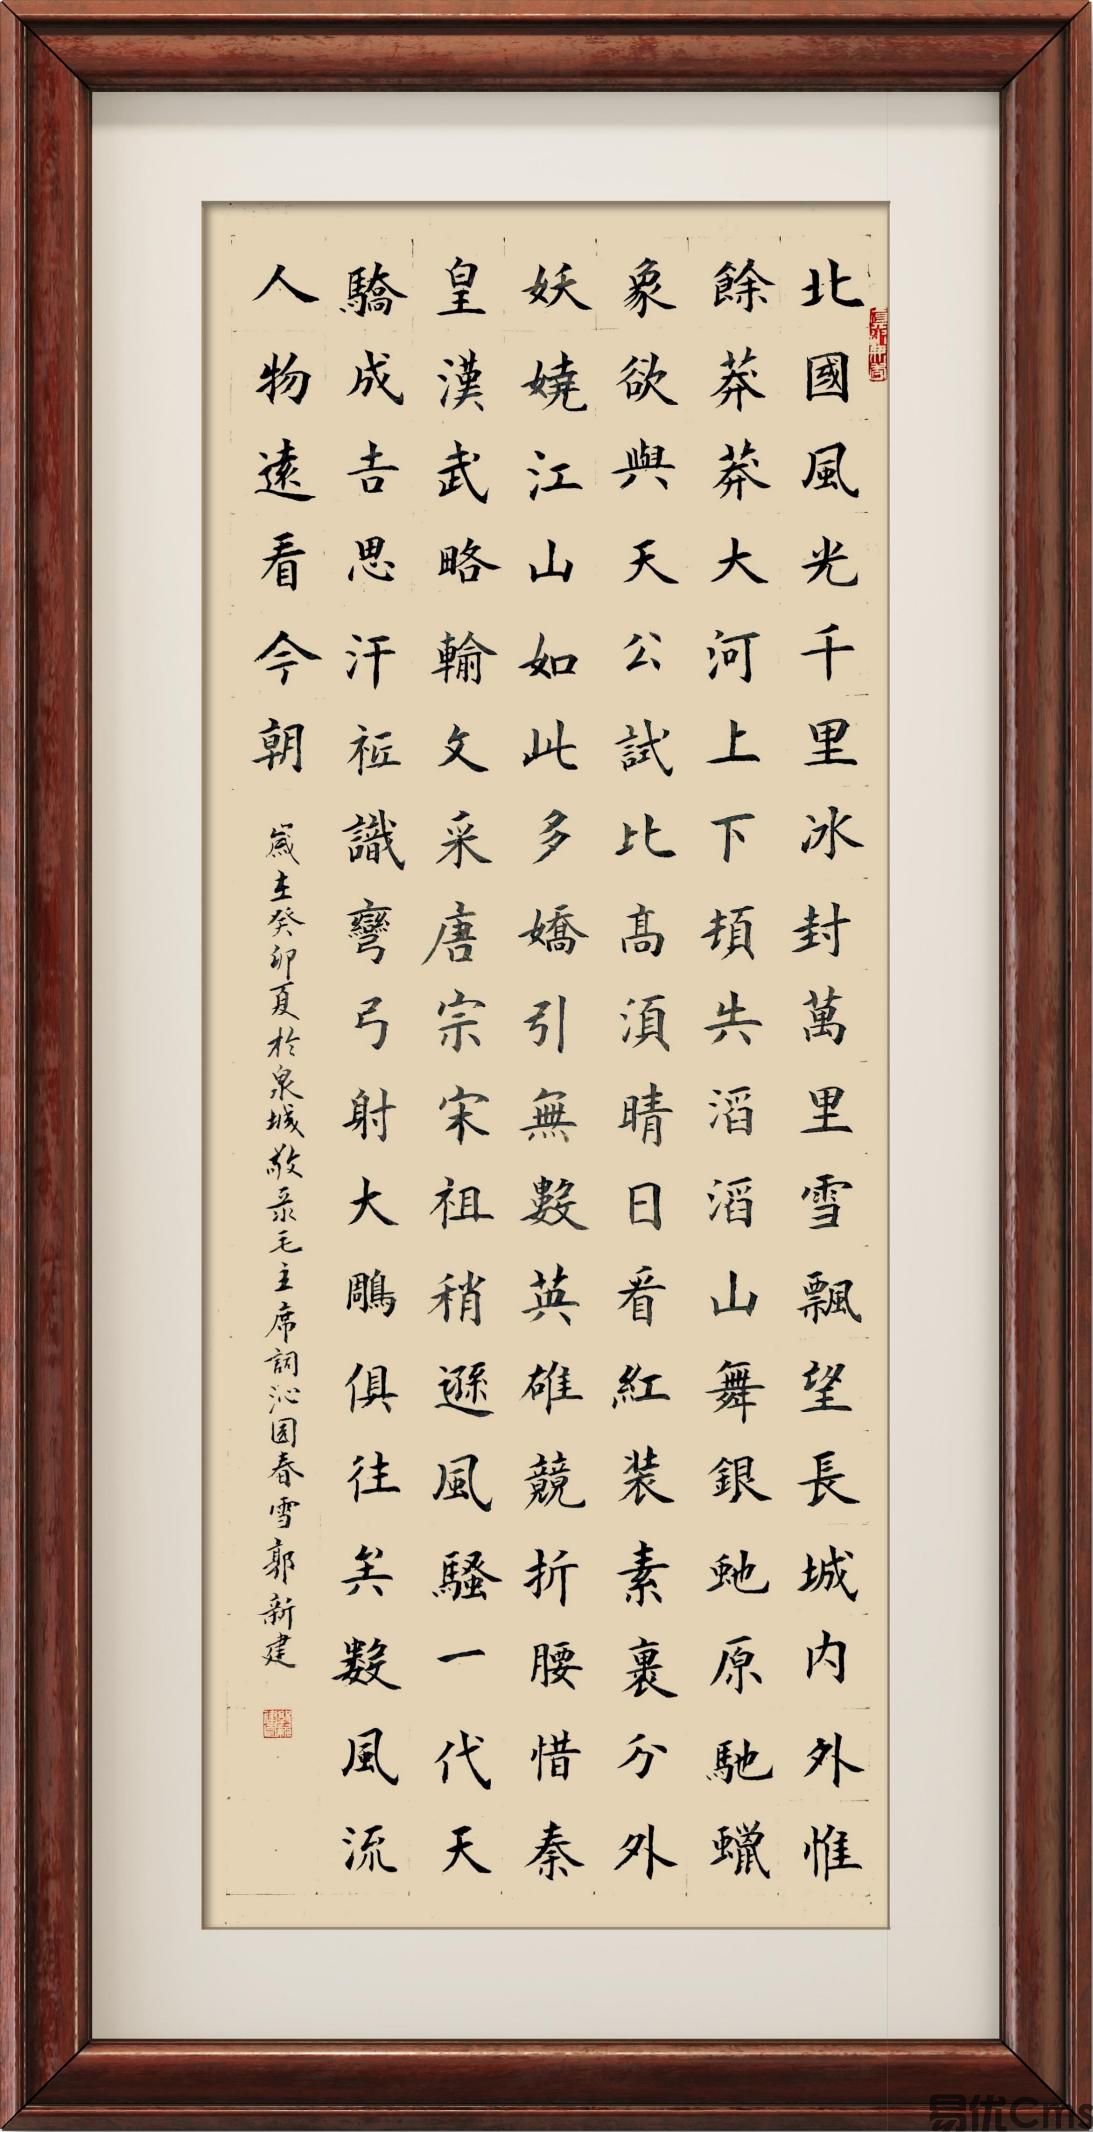 北國風光千里冰封萬里雪飄望長城内外惟
餘莽莽大河上下頓失滔滔山舞銀虵原馳蠟
象欲與天公試比髙須晴日看紅装素裹分外
妖嬈江山如此多嬌引無數英雄競折腰惜秦
皇漢武略輸文采唐宗宋祖稍遜風騷一代天
驕成吉思汗祗識彎弓射大鵰俱往矣數風流
人物遠看今朝
歲在癸卯夏於泉城敬录毛主席詞沁园春雪郭新建
易优Cms